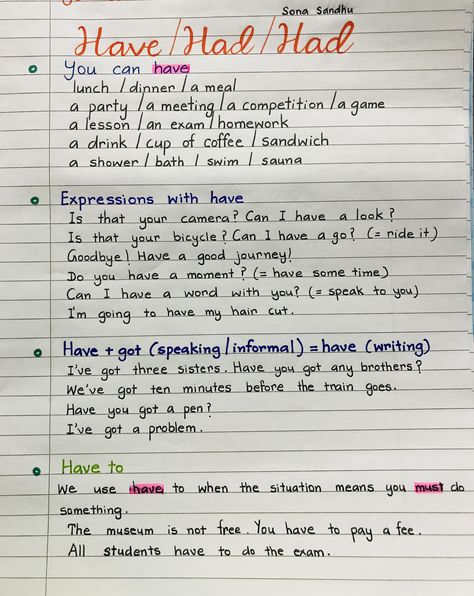 Sona Sandhu
Have/Had/Had
You can have
lunch / dinner / a meal
a party / a meeting / a competition / a game
a lesson / an exam / homework
a drink / cup of coffee / sandwich
a shower / bath / swim / sauna
Expressions with have
Is that your camera? Can I have a look?
Is that your bicycle? Can I have a go? (= ride it)
Goodbye! Have a good journey!
Do you have a moment? (= have some time)
Can I have a word with you? (= speak to you)
I'm going to have my hair cut.
Have + got (speaking/informal) = have (writing)
I've got three sisters. Have you got any brothers?
We've got ten minutes before the train goes.
Have you got a pen?
I've got a problem.
Have to
We use have to when the situation means you must do
something.
The museum is not free. You have to pay a fee.
All students have to do the exam.